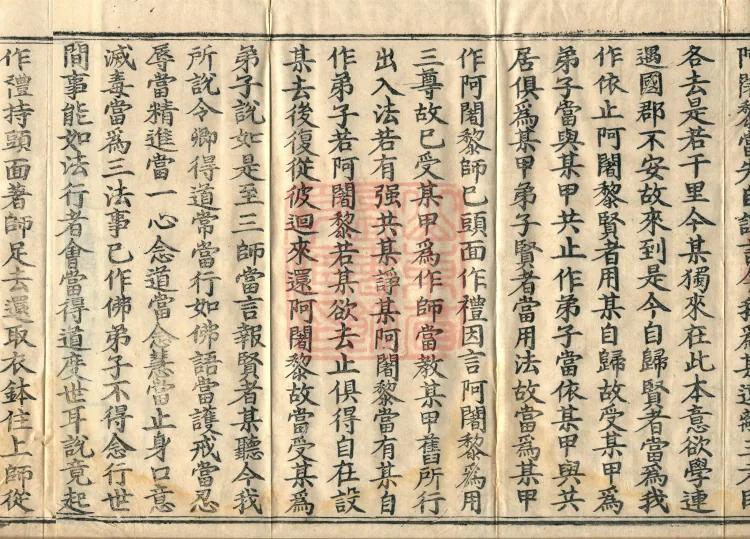 各去是若干里今某獨來在此本意欲學連
遇國郡不安故來到是今自歸賢者當為我
作依止阿闍黎賢者用某自歸故受某甲為
弟子當與某甲共止作弟子當依某甲與共
居俱為某甲弟子賢者當用法故當為某甲
作阿闍黎師已頭面作禮因言阿闍黎為用
三尊故已受某甲為作師當教某甲舊所行
出入法若有强共某諍某阿闍黎當有某自
作弟子若阿闍黎若某欲去止俱得自在設
某去後復從彼迴來還阿闍黎故當受某為
弟子說如是至三師當言報賢者某聽今我
所說令卿得道常當行如佛語當護戒當忍
辱當精進當一心念道當念慧當止身口意
滅毒當為三法事已作佛弟子不得念行世
間事能如法行者會當得道度世耳說竟起
作禮持頭面著師足去還取衣鉢住上師從